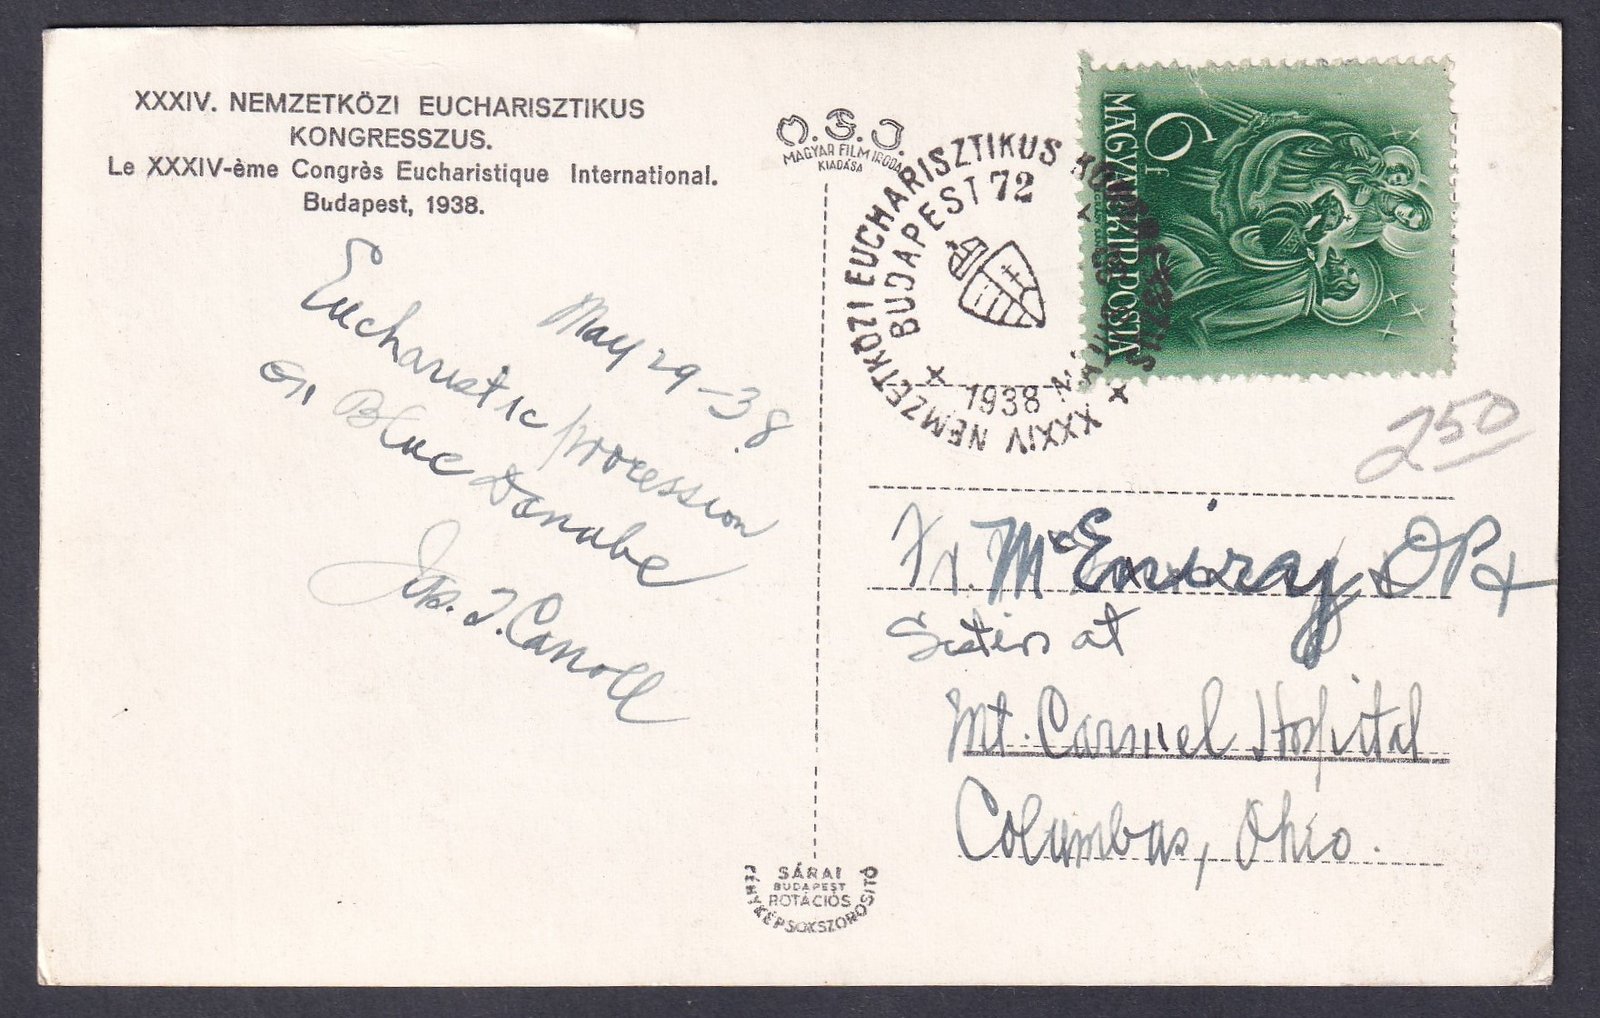 XXXIV. NEMZETKÖZI EUCHARISZTIKUS
KONGRESSZUS.
Le XXXIV-ème Congrès Eucharistique International.
Budapest, 1938.
May 29-38
Eucharistic procession
on Blue Danube
Jos. J. Carroll
M.F.I.
MAGYAR FILM IRODA
KIADÁSA
SÁRAI
BUDAPEST
ROTÁCIÓS
FÉNYKÉPSOKSZOROSITÓ
XXXIV NEMZETKÖZI EUCHARISZTIKUS
BUDAPEST 72
1938
6 f
MAGYAR KIR. POSTA
250
Fr. OP
at
Mt. Carmel Hospital
Columbus, Ohio.